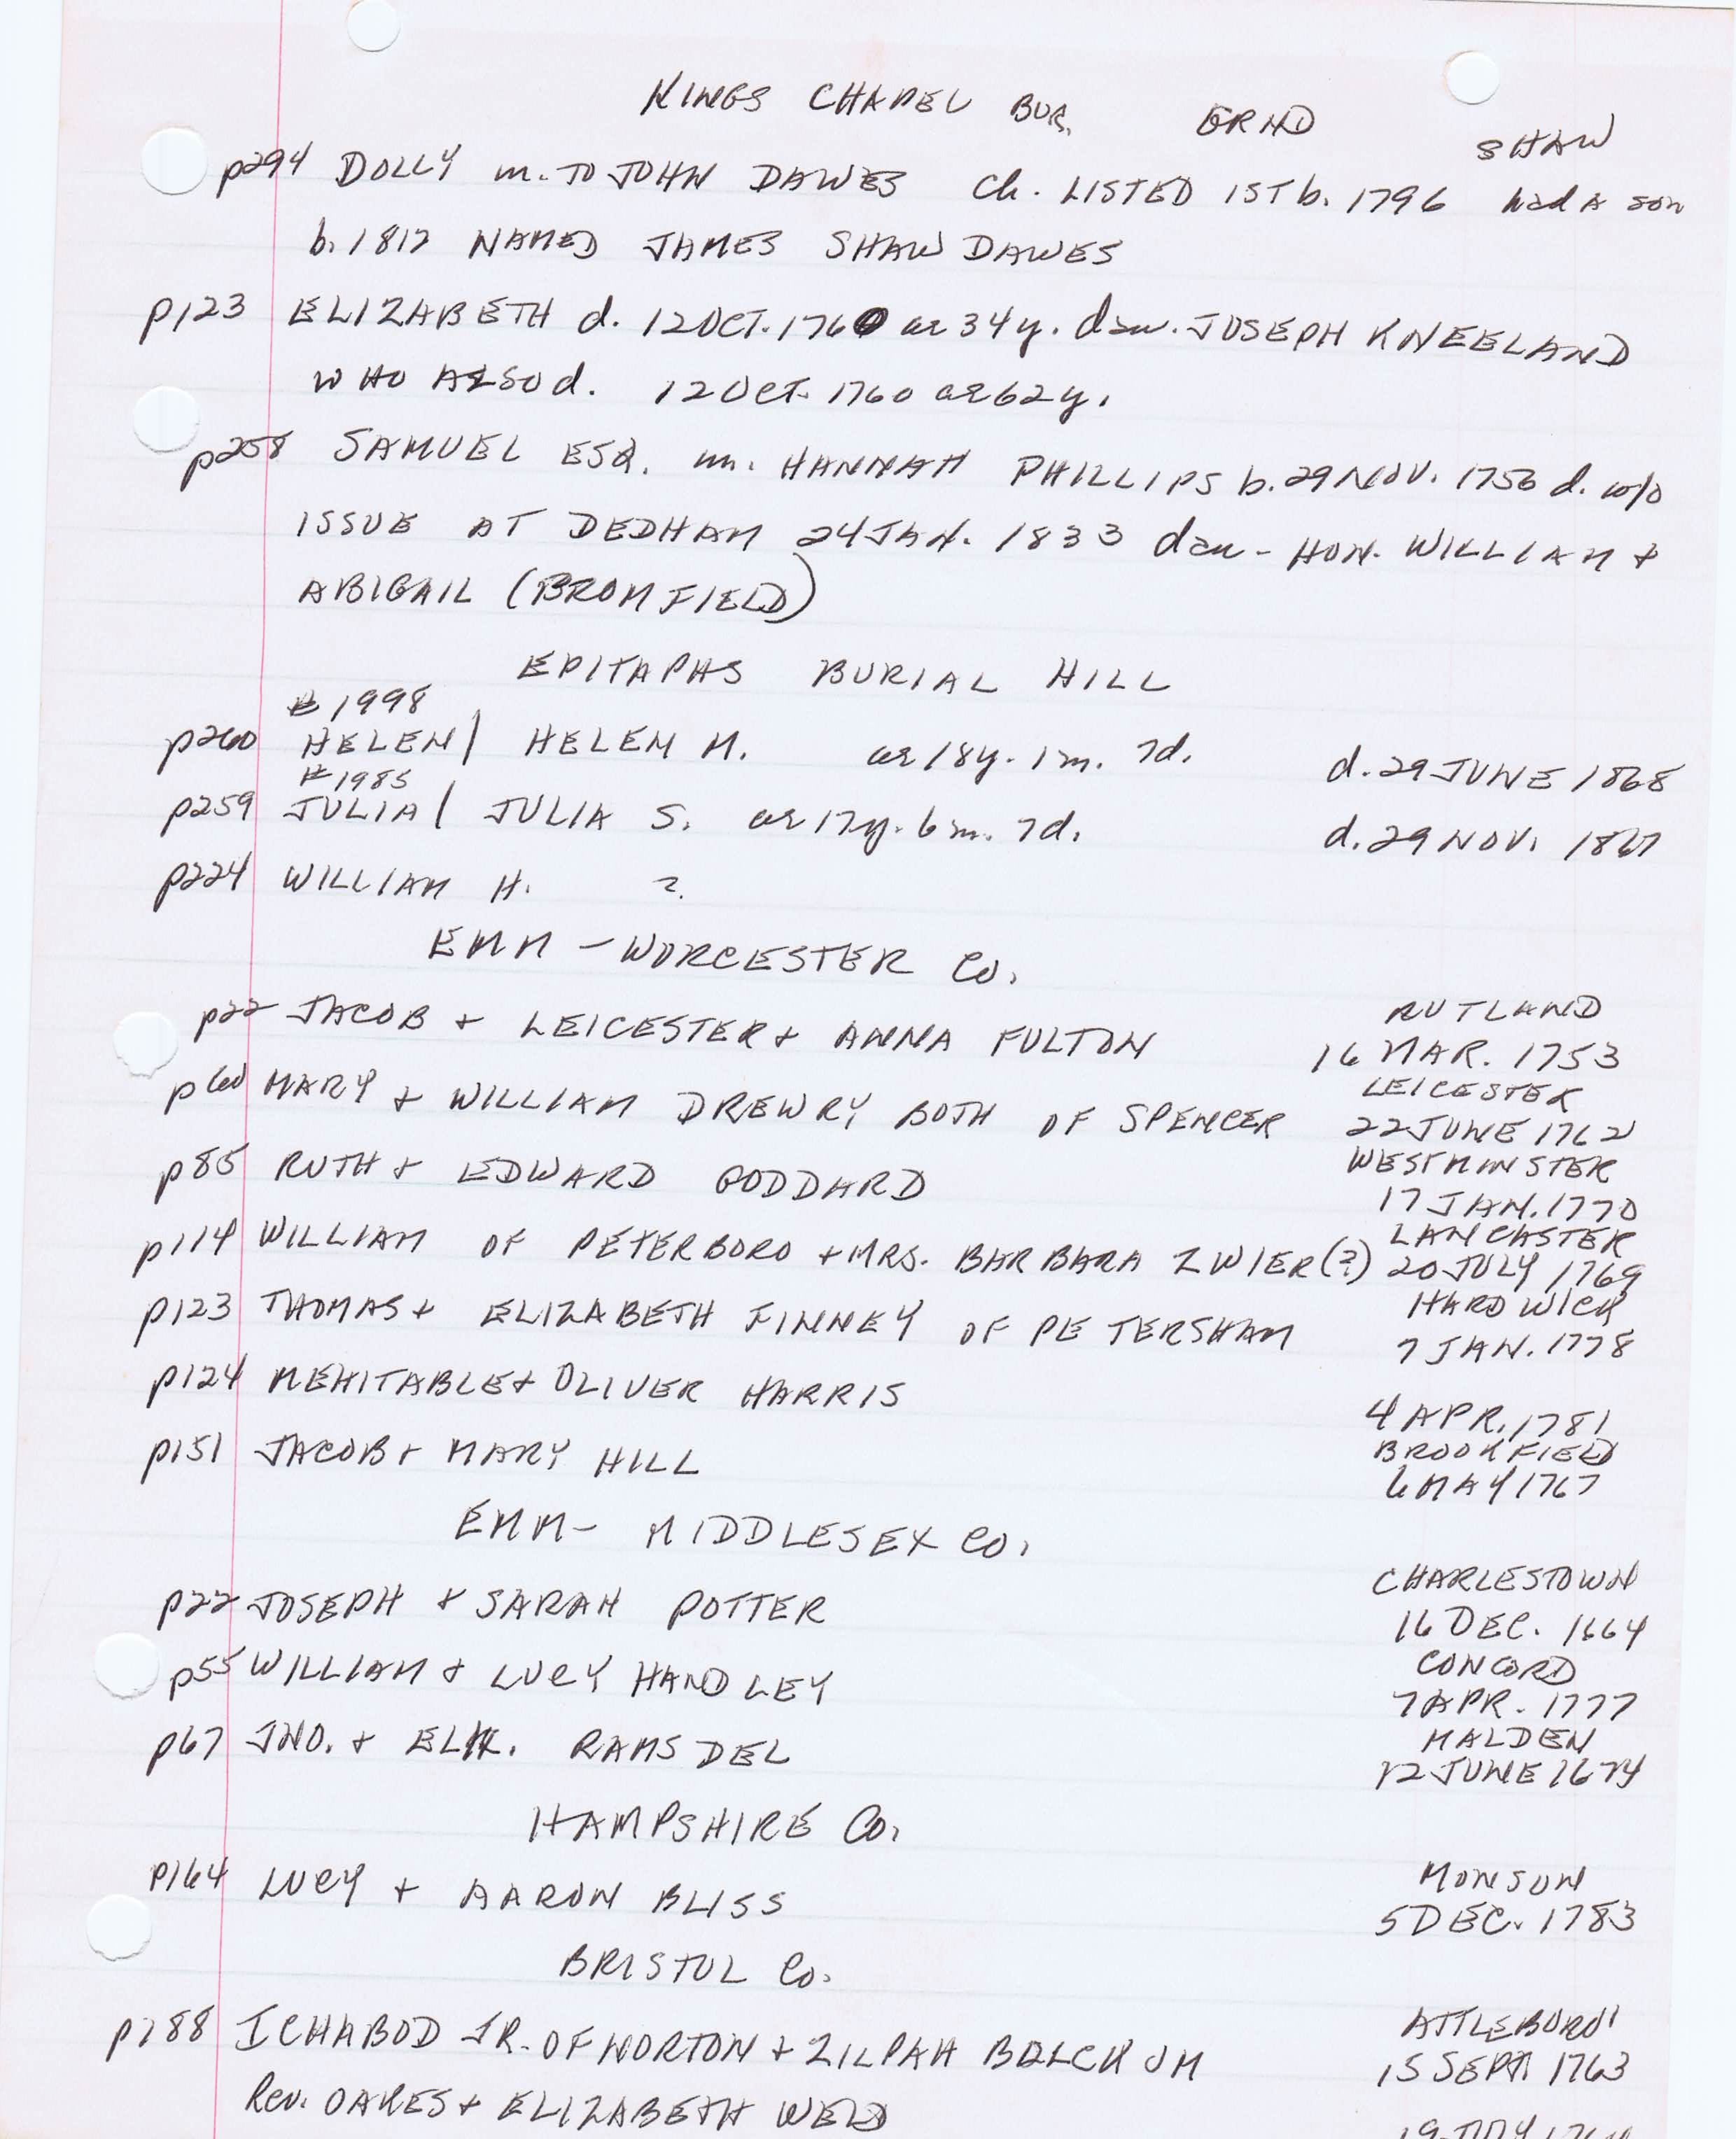 KINGS CHAPEL BUR. GRND SHAW
p294 DOLLY m. TO JOHN DAWES Ch. LISTED 1ST b. 1796 had a son
b. 1817 NAMED JAMES SHAW DAWES
p123 ELIZABETH d. 12 OCT. 1760 ae 34y. dau. JOSEPH KNEELAND
WHO ALSO d. 12 OCT. 1760 ae 62y.
p258 SAMUEL ESQ. m. HANNAH PHILLIPS b. 29 NOV. 1756 d. w/o
ISSUE AT DEDHAM 24 JAN. 1833 dau - HON. WILLIAM +
ABIGAIL (BROMFIELD)
EPITAPHS BURIAL HILL
# 1998
p260 HELEN / HELEN M. ae 18y. 1m. 7d. d. 29 JUNE 1868
# 1985
p259 JULIA / JULIA S. ae 17y. 6m. 7d. d. 29 NOV. 1867
p224 WILLIAM H. ?
EMM - WORCESTER Co.
RUTLAND
p22 JACOB + LEICESTER + ANNA FULTON 16 MAR. 1753
LEICESTER
p60 MARY + WILLIAM DREWRY BOTH OF SPENCER 22 JUNE 1762
WESTMINSTER
p85 RUTH + EDWARD GODDARD 17 JAN. 1770
LANCASTER
p114 WILLIAM OF PETERBORO + MRS. BARBARA ZWIER (?) 20 JULY 1769
HARDWICK
p123 THOMAS + ELIZABETH FINNEY OF PETERSHAM 7 JAN. 1778
p124 MEHITABLE + OLIVER HARRIS 4 APR. 1781
BROOKFIELD
p151 JACOB + MARY HILL 6 MAY 1767
EMM - MIDDLESEX CO.
CHARLESTOWN
p22 JOSEPH + SARAH POTTER 16 DEC. 1664
CONCORD
p55 WILLIAM + LUCY HANDLEY 7 APR. 1777
MALDEN
p67 JNO. + ELIZ. RAMSDEL 12 JUNE 1674
HAMPSHIRE Co.
MONSON
p164 LUCY + AARON BLISS 5 DEC. 1783
BRISTOL Co.
ATTLEBORO'
p188 ICHABOD JR. OF NORTON + ZILPAH BELCHOM 15 SEPT. 1763
Rev. OAKES + ELIZABETH WELD